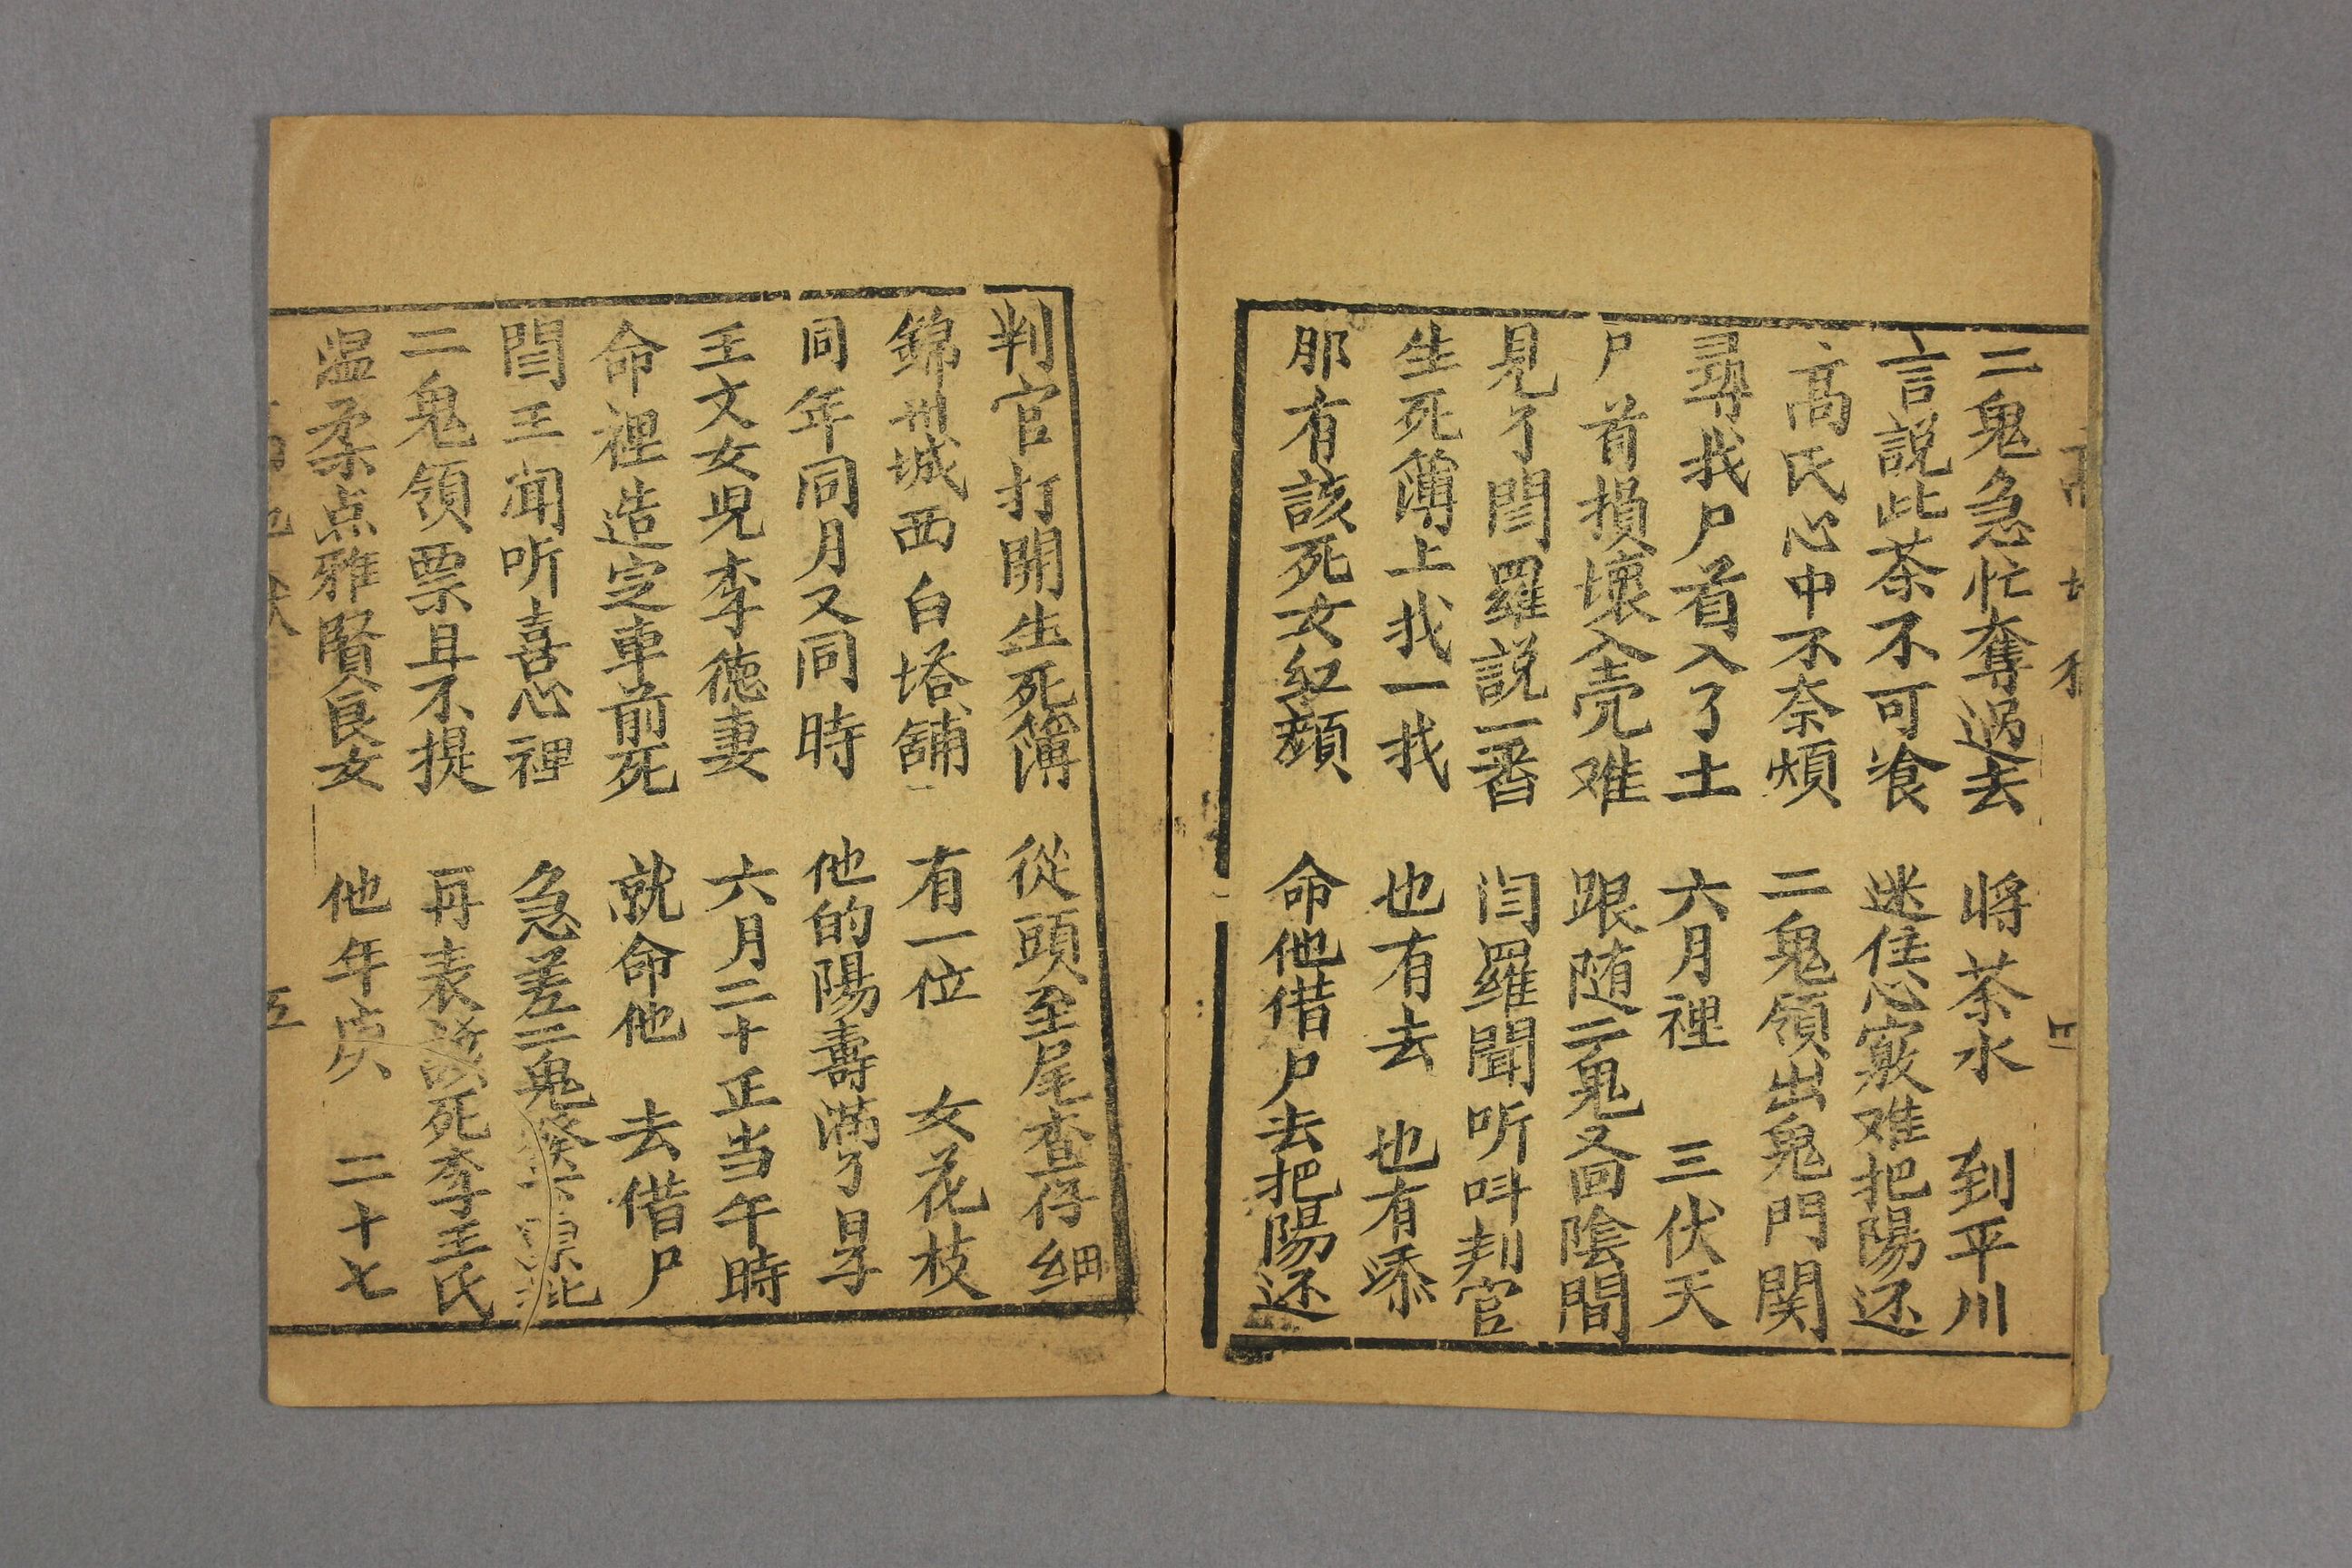 二鬼急忙奪過去　將茶水　到平川
言說此茶不可飡　迷住心竅难把陽还
高氏心中不奈煩　二鬼領出鬼門関
尋我尸首入了土　六月裡　三伏天
尸首損壞入壳难　跟随二鬼又回陰間
見了閻羅說一番　闫羅聞听呌判官
生死簿上找一找　也有去　也有添
那有該死女紅顔　命他借尸去把陽还
判官打開生死簿　從頭至尾查仔細
錦州城西白塔舖　有一位　女花枝
同年同月又同時　他的陽壽滿了日
王文女児李德妻　六月二十正当午時
命裡造定車前死　就命他　去借尸
閻王闻听喜心裡　急差二鬼
二鬼領票且不提　再表該死李王氏
温柔点雅賢良女　他年庚　二十七
五